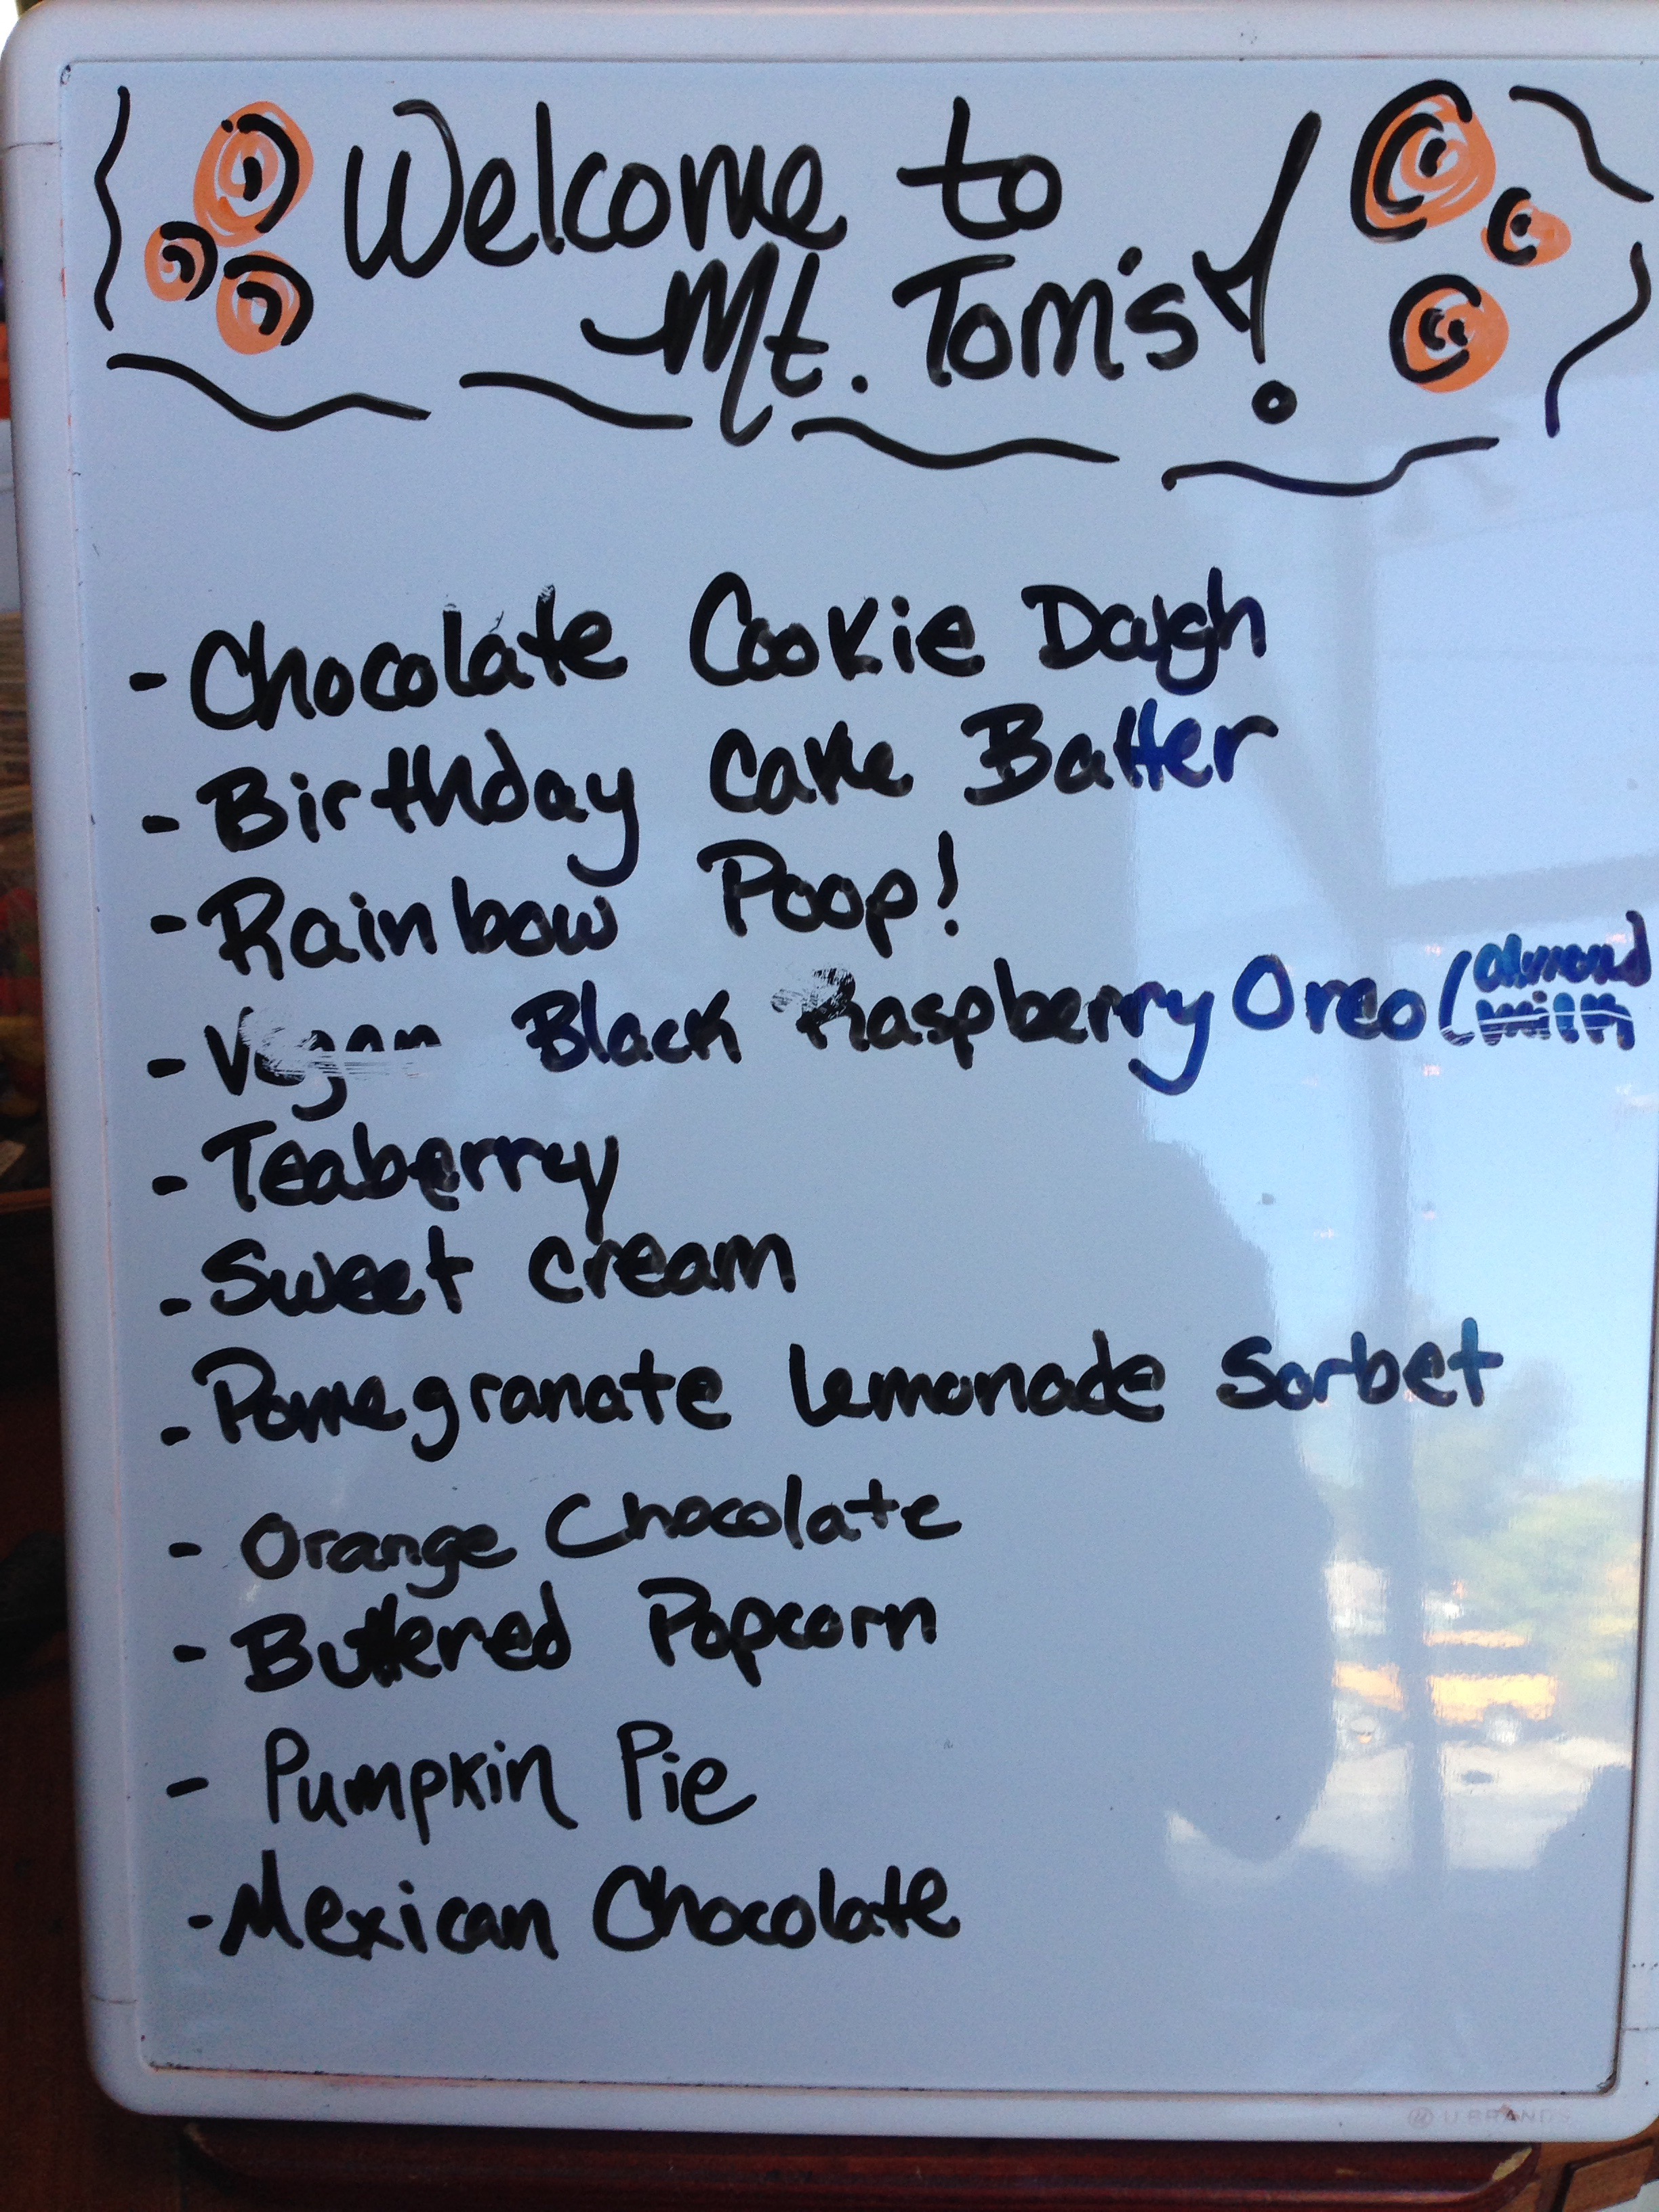 Welcome to
Mt. Tom's!
- Chocolate Cookie Dough
- Birthday Cake Batter
- Rainbow Poop!
- Vegan Black Raspberry Oreo (almond
milk
- Teaberry
- Sweet Cream
- Pomegranate Lemonade Sorbet
- Orange Chocolate
- Buttered Popcorn
- Pumpkin Pie
- Mexican Chocolate
U BRANDS